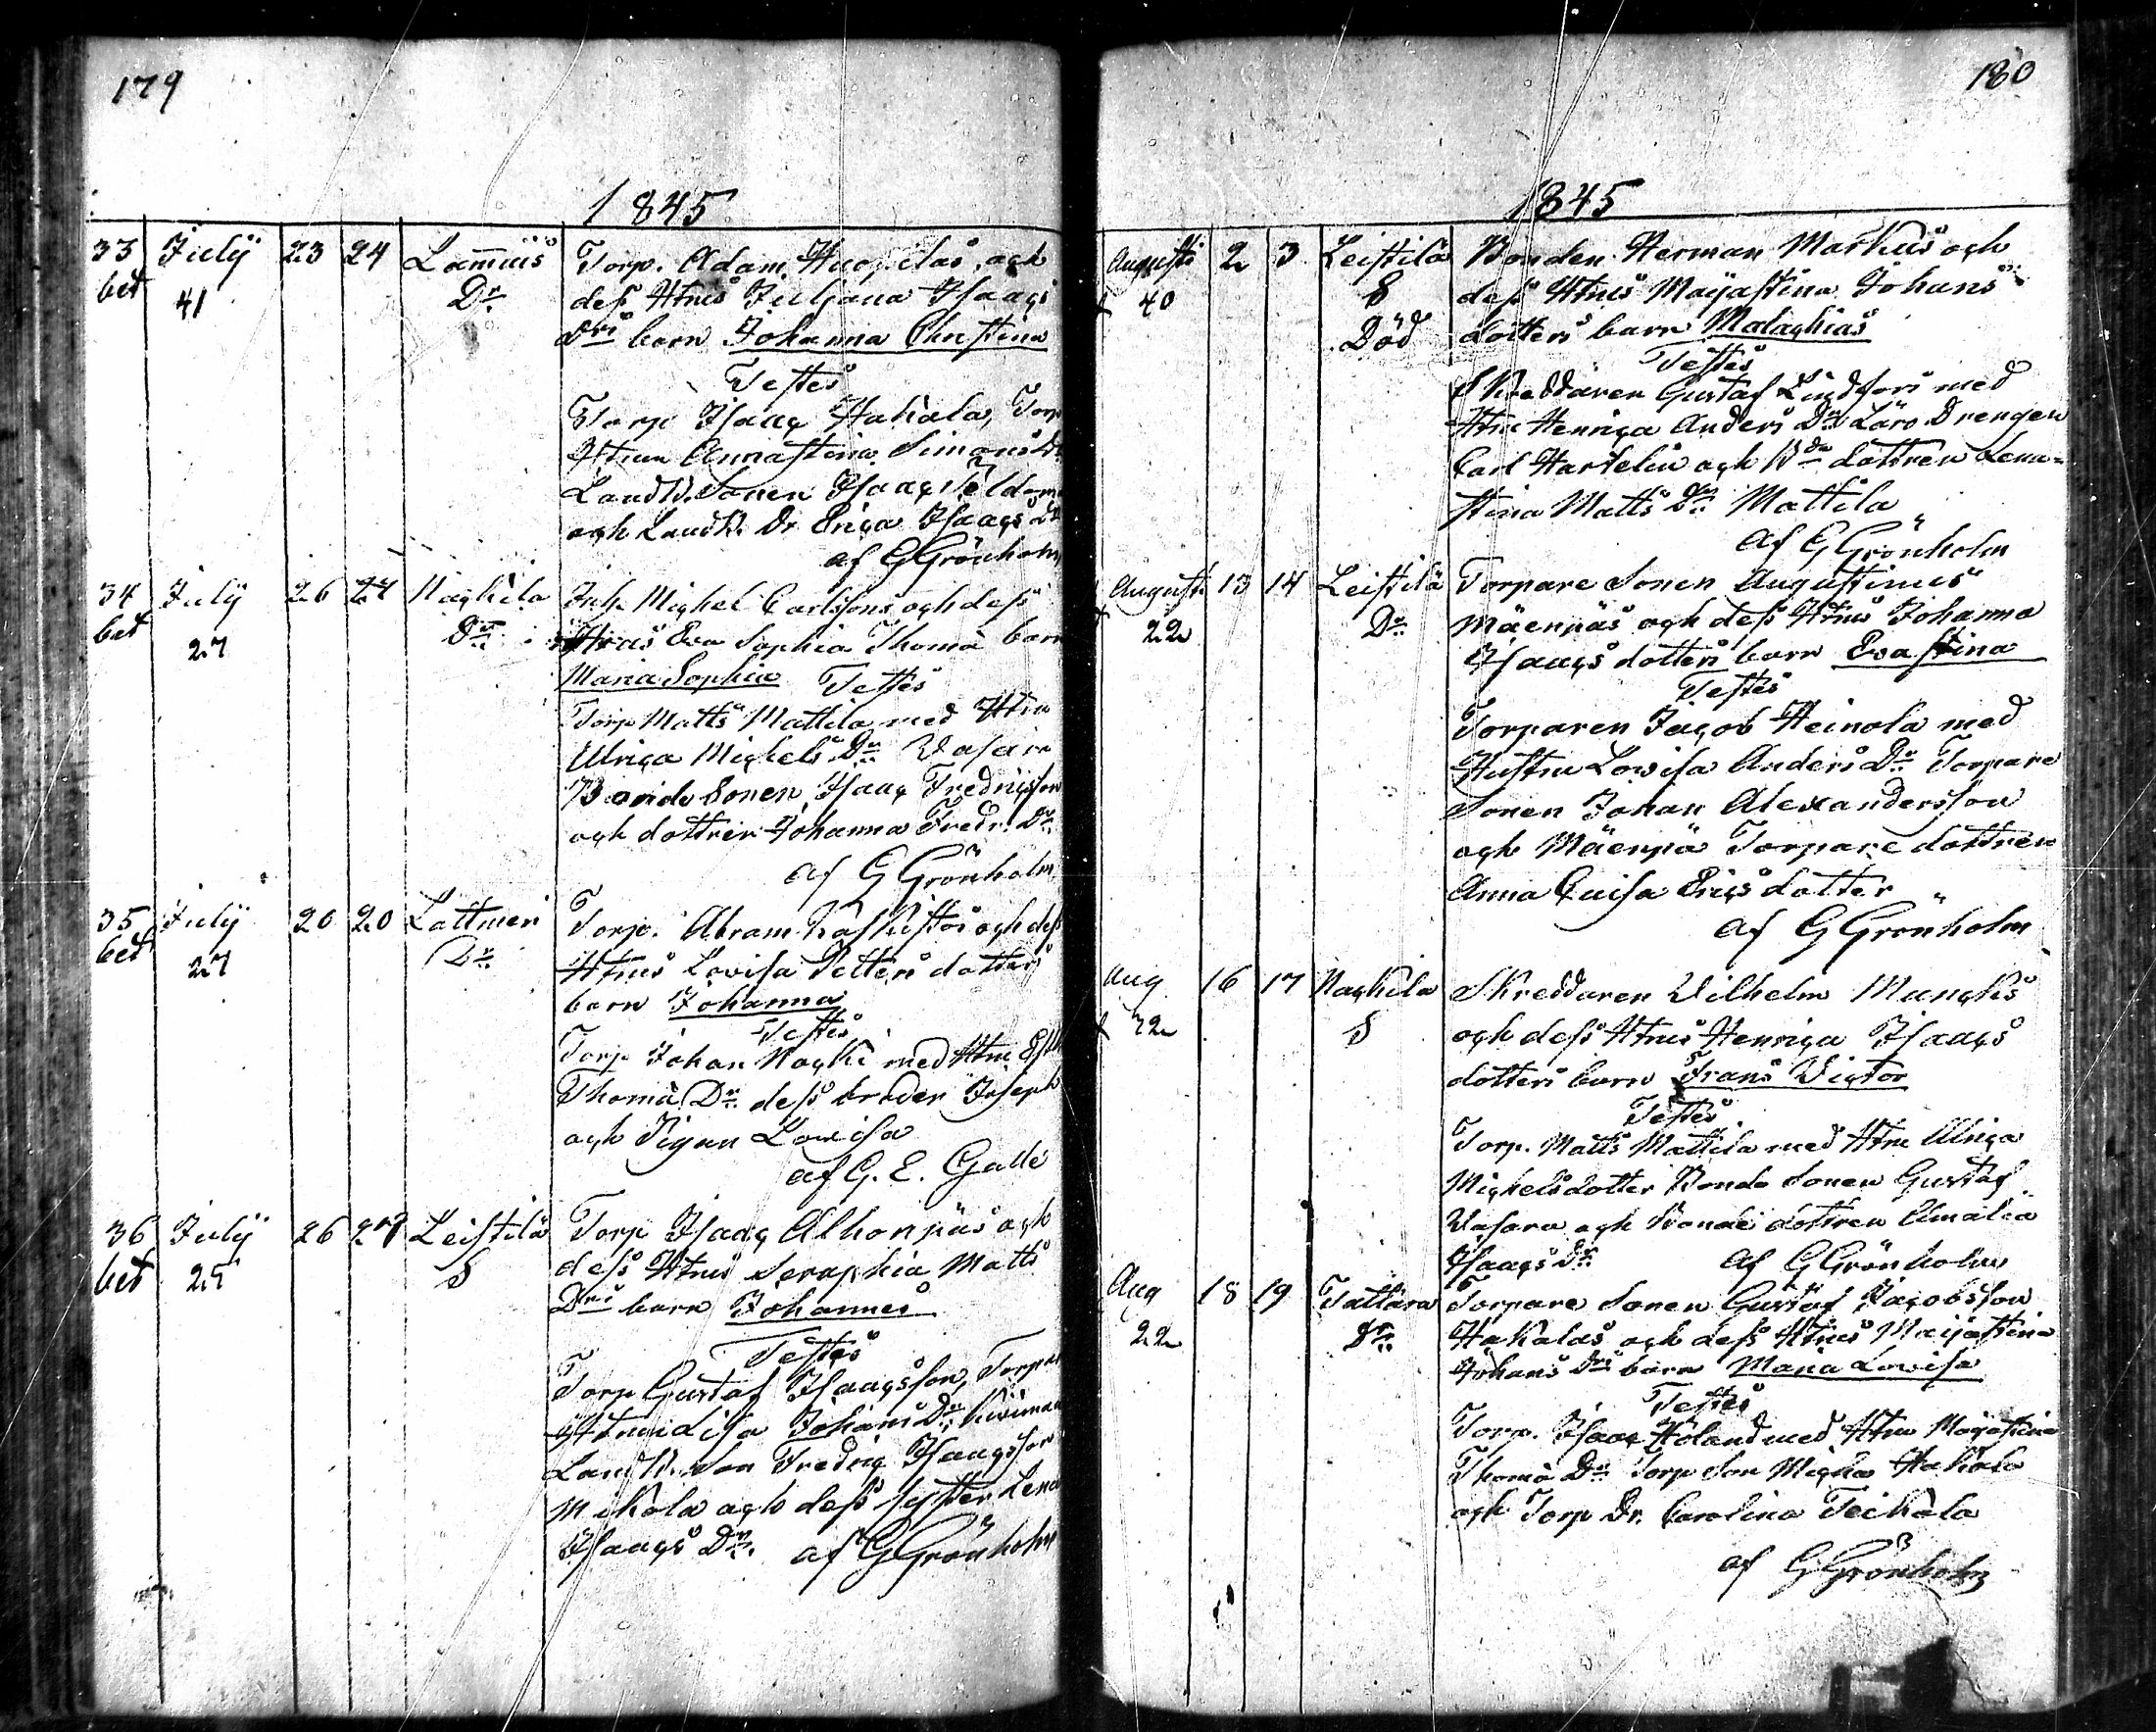 179
1845
33 July 23 24 Lammus Torp. Adam Huopilas och
bet 41 Dr dess Hrus Juljana Isaacs
Drs barn Johanna Christina
Testes
Torp Isaac Hakala, Torp
Hrun Annastina Simonsdr
Landb. Sonen Isaac
och Landb. Dr Erica Isaacs Dr
af G Grönholm
34 July 26 27 Nackila Inh. Michel Carlssons och dess
bet 27 Dr Hrus Eva Sophia Thomä barn
Maria Sophia Testes
Torp Matts Mattila med Hru
Ulrica Michels Dr Vasara
Bonde Sonen Isaac Fredricsson
och dottren Johanna Fredr. Dr
af G Grönholm
35 July 20 20 Lattmeri Torp. Abram Kaskistos och dess
bet 27 Dr Hrus Lovisa Petters dotters
barn Johanna
Testes
Torp Johan Nacki med Hru
Thomä Dr dess broder Joseph
och Pigan Lovisa
af G. E. Galle
36 July 26 27 Leistilä Torp Isaac Alhonpäs och
bet 25 S dess Hrus Seraphia Matts
Drs barn Johannes
Testes
Torp Gustaf Isaacsson, Torpar
Hrun Lisa Johans Dr
Landb. Son Fredric Isaacsson
Mikola och dess syster Lena
Isaacs Dr. af G Grönholm
180
1845
Augusti 2 3 Leistilä Bonden Herman Markus och
x 40 S dess Hrus Majastina Johans
Död dotters barn Malachias
Testes
Skreddaren Gustaf Lindfors med
Hru Henrica Anders Dr Läro Drengen
Carl Hartelin och Bde dottren Lena
stina Matts Dr Mattila
af G Grönholm
Augusti 13 14 Leistilä Torpare Sonen Augustinus
x 22 Dr Mäenpäs och dess Hrus Johanna
Isaacs dotters barn Eva Stina
Testes
Torparen Jacob Heinola med
Hustru Lovisa Anders Dr Torpare
Sonen Johan Alexandersson
och Mäenpä Torpare dottren
Anna Luisa Erics dotter
af G Grönholm
Aug 16 17 Nackila Skreddaren Vilhelm Muncks
x 32 S och dess Hrus Henrica Isaacs
dotters barn Frans Victor
Testes
Torp. Matts Mattila med Hru Ulrica
Michelsdotter Bonde Sonen Gustaf
Vasara och Bonde dottren Amalia
Isaacs Dr af G Grönholm
Aug 18 19 Tattara Torpare Sonen Gustaf Jacobsson
22 Dr Hakalas och dess Hrus Majastina
Johans Drs barn Maria Lovisa
Testes
Torp. Isaac Höland med Hru Majastina
Thomä Dr Torp Son Micha Hakala
och Torp Dr. Carolina Teikala
af G Grönholm